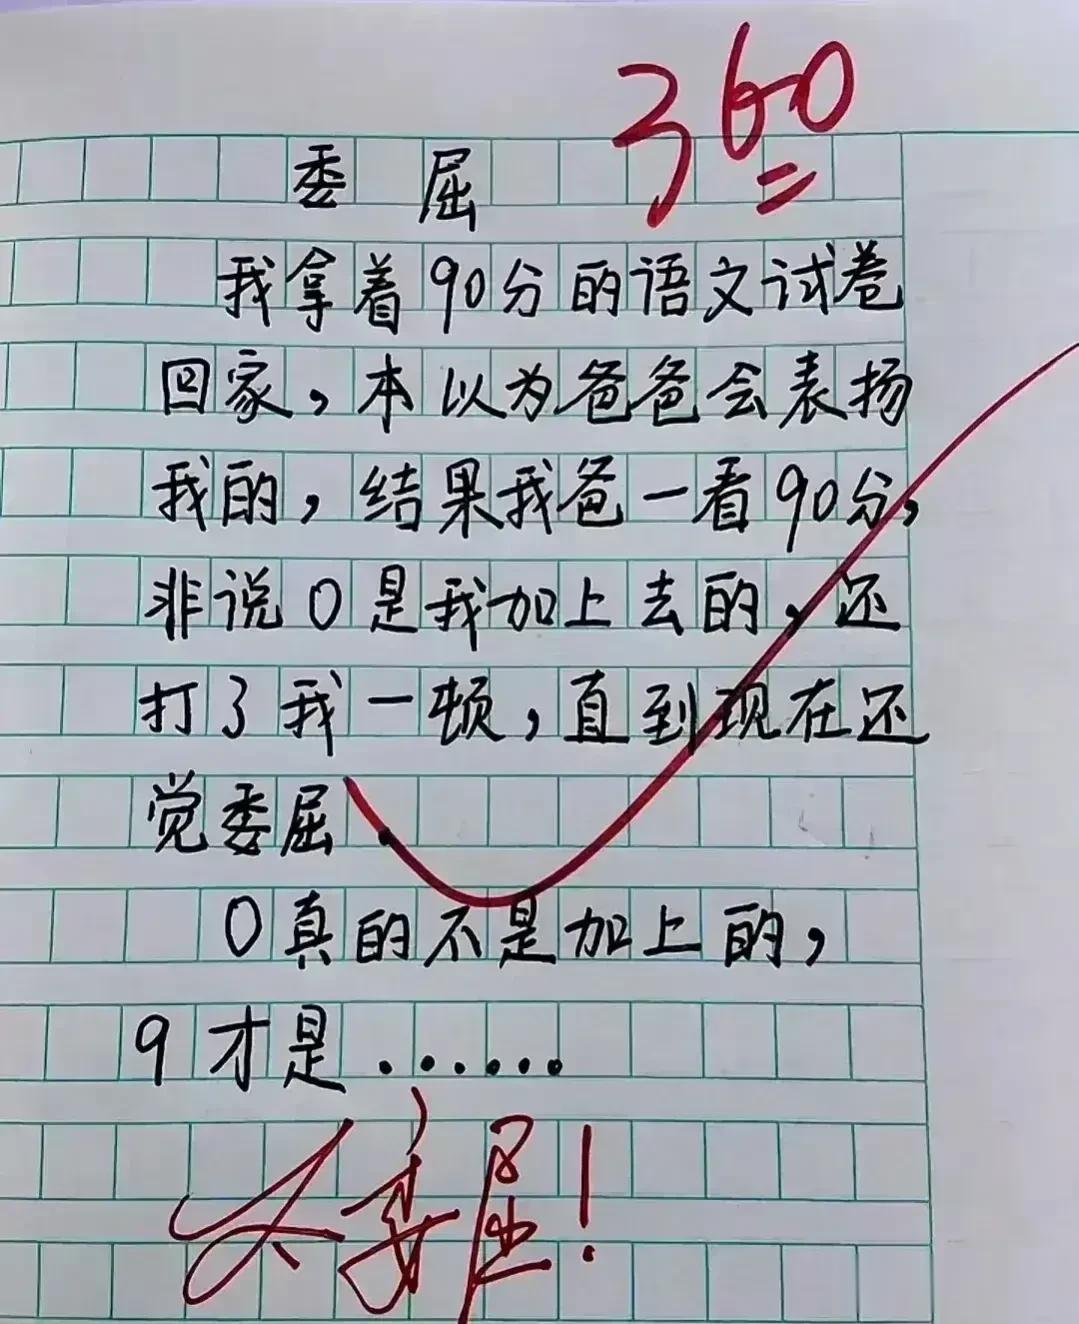 360
委屈
我拿着90分的语文试卷
回家，本以为爸爸会表扬
我的，结果我爸一看90分，
非说0是我加上去的，还
打了我一顿，直到现在还
觉委屈.
0真的不是加上的，
9才是……
太委屈！